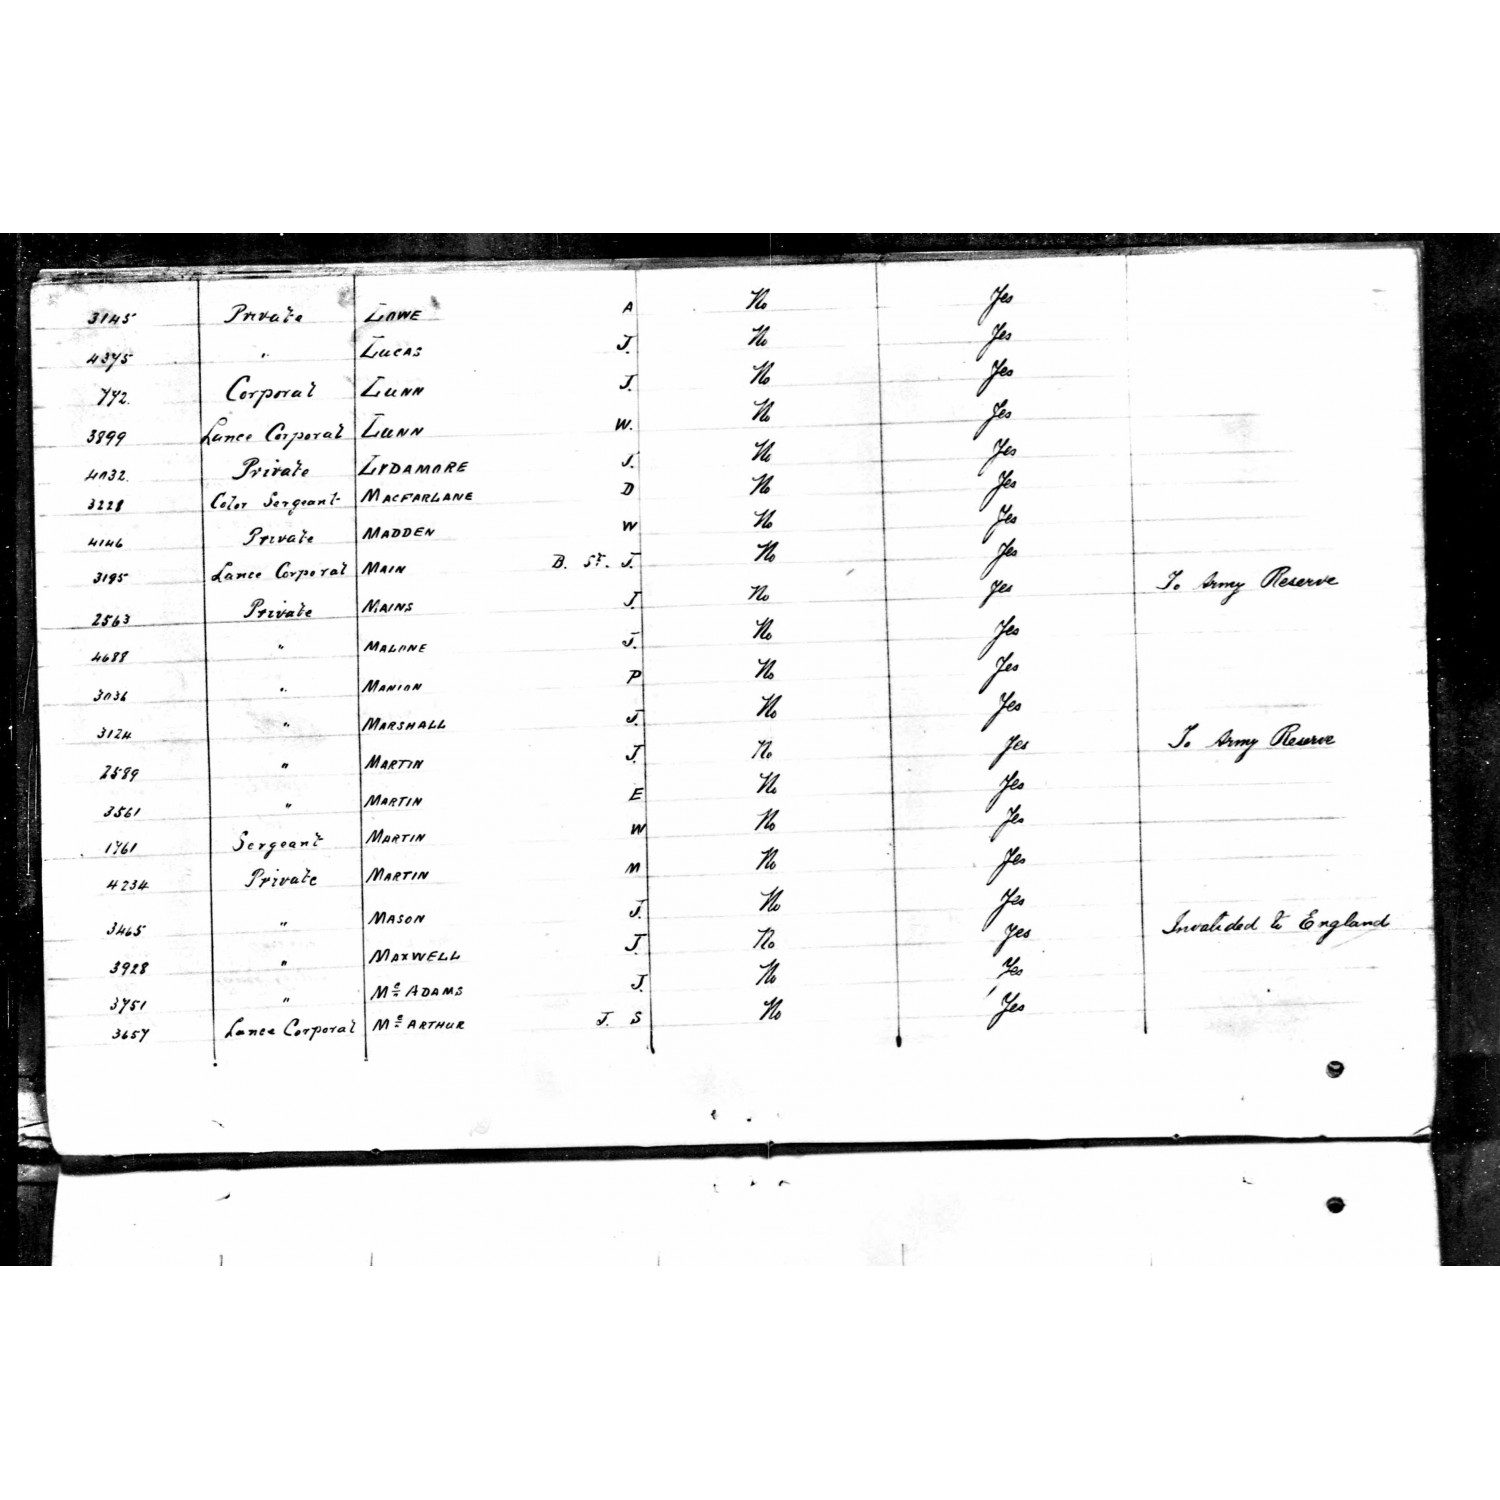 3145 Private LOWE A No Yes
4375 " LUCAS J. No Yes
772. Corporal LUNN J. No Yes
3899 Lance Corporal LUNN W. No Yes
4032. Private LYDAMORE J. No Yes
3228 Color Sergeant MACFARLANE D No Yes
4146 Private MADDEN W No Yes
3195 Lance Corporal MAIN B. ST. J. No Yes
2563 Private MAINS J. No Yes To Army Reserve
4688 " MALONE J. No Yes
3036 " MANION P No Yes
3124 " MARSHALL J. No Yes
2589 " MARTIN J. No Yes To Army Reserve
3561 " MARTIN E No Yes
1761 Sergeant MARTIN W No Yes
4234 Private MARTIN M No Yes
3465 " MASON J. No Yes
3928 " MAXWELL J. No Yes Invalided to England
3751 " Mc ADAMS J. No Yes
3657 Lance Corporal Mc ARTHUR J. S No Yes